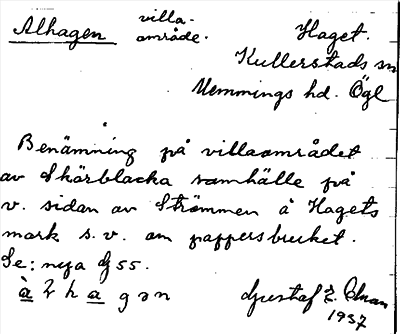 Alhagen villa-område. Haget.
Kullerstads sn
Memmings hd. Ögl
Benämning på villaområdet
av Skärblacka samhälle på
v. sidan av Strömmen å Hagets
mark s.v. om pappersbruket.
Se: nya
55.
Gustaf E.
1937